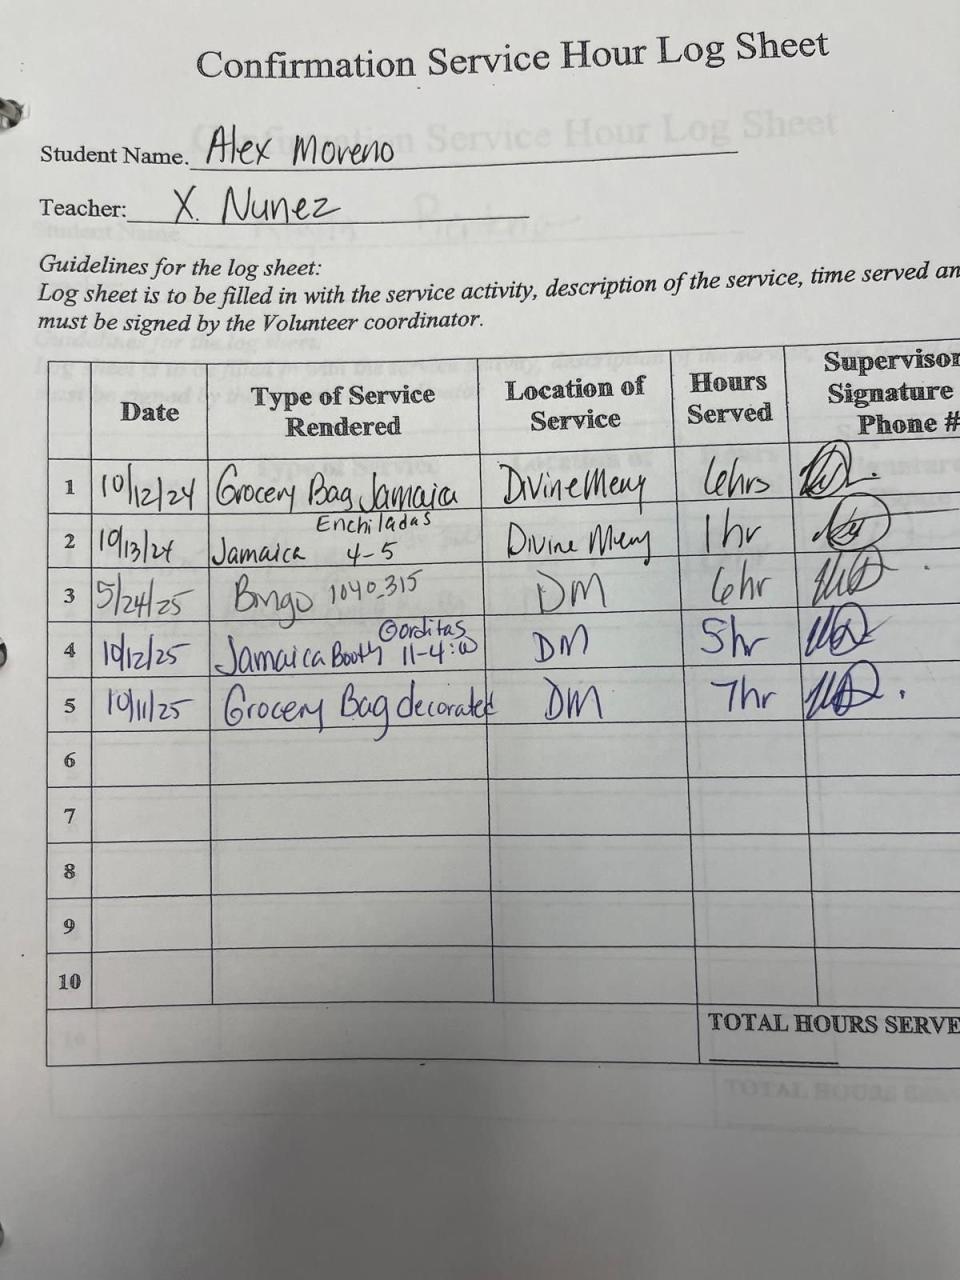 Confirmation Service Hour Log Sheet
Student Name. Alex Moreno
Teacher: X. Nunez
Guidelines for the log sheet:
Log sheet is to be filled in with the service activity, description of the service, time served an
must be signed by the Volunteer coordinator.
Date Type of Service Rendered Location of Service Hours Served Supervisor Signature Phone #
1 10/12/24 Grocery Bag Jamaica Divine Mercy 6hrs
2 10/13/24 Enchiladas Jamaica 4-5 Divine Mercy 1 hr
3 5/24/25 Bingo 1040-315 DM 6hr
4 10/12/25 Gorditas Jamaica Booth 11-4:00 DM 5hr
5 10/11/25 Grocery Bag decorated DM 7hr
6
7
8
9
10
TOTAL HOURS SERVE